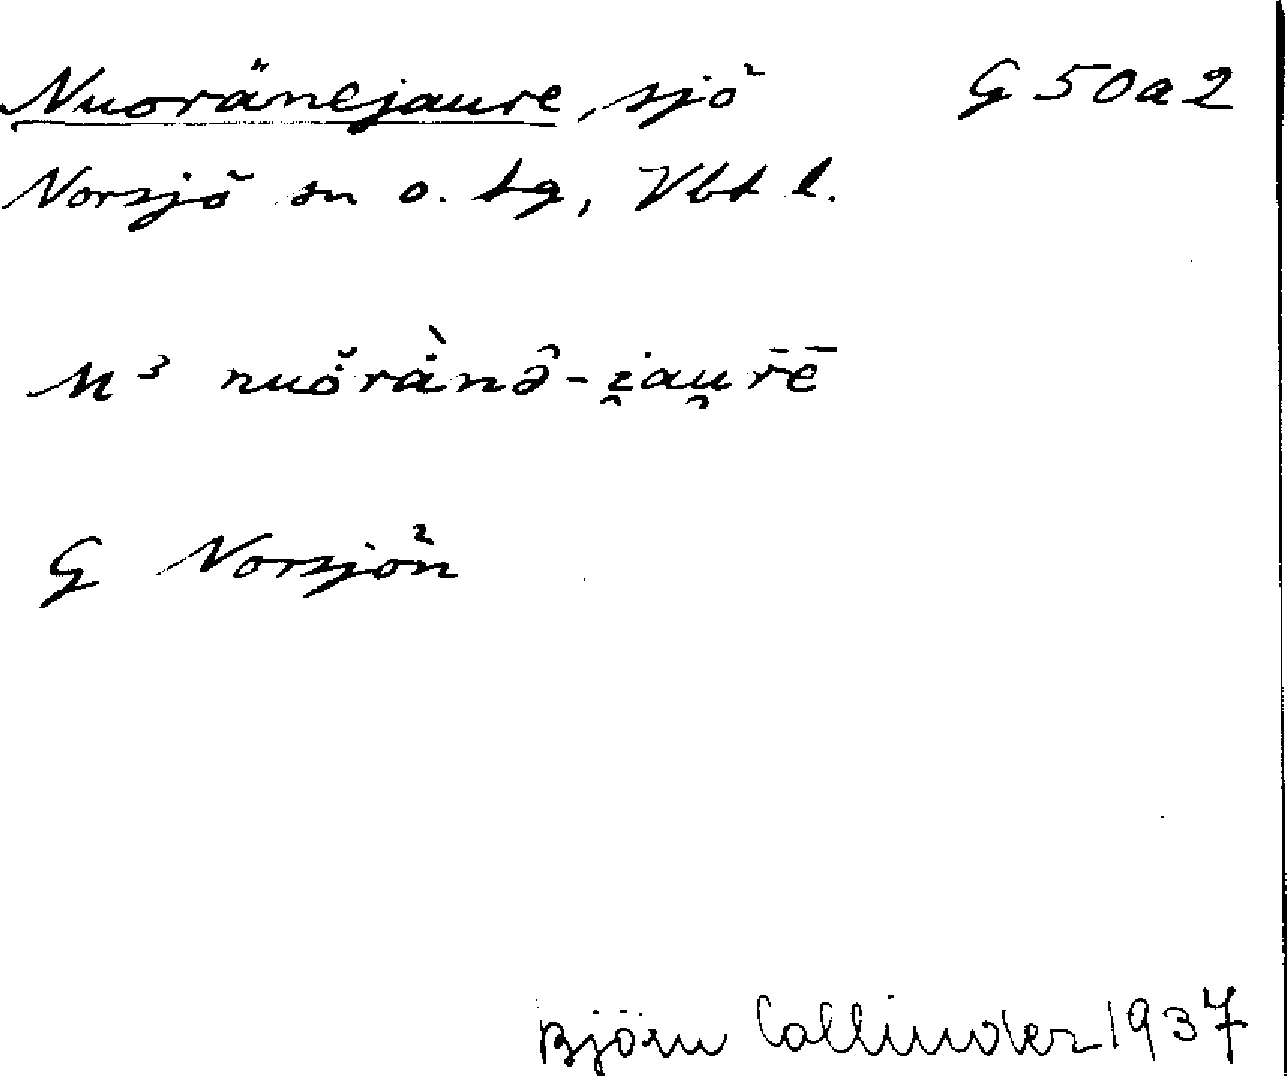 Nuoränejaure, sjö G 50a2
Norsjö sn o. tg, Vbt l.
M³ nuọ̆rȧ̀nə̂-i̯au̯r̄ē
G Norsjön
Björn Collinder 1937